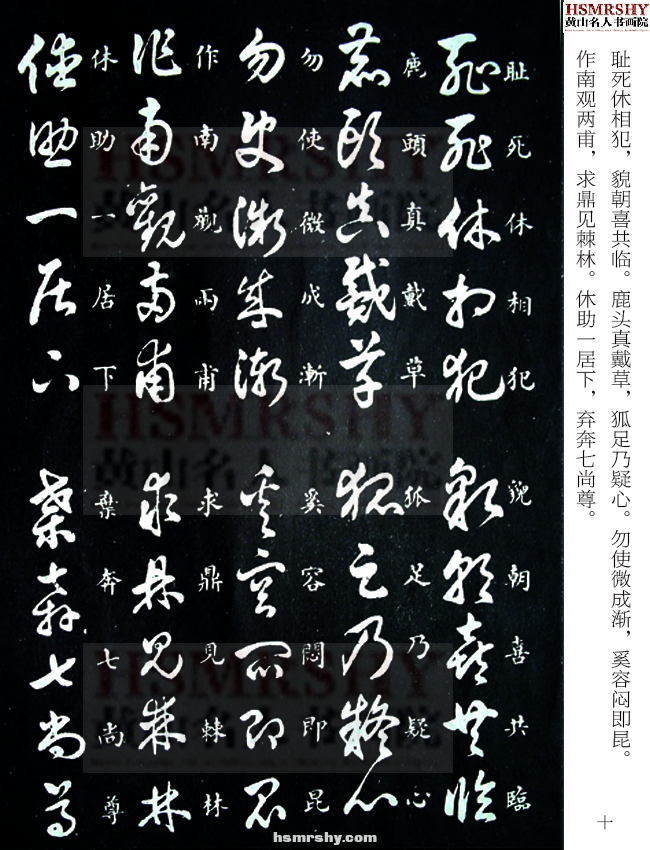 HSMRSHY
黄山名人书画院
耻死休相犯，貌朝喜共临。鹿头真戴草，狐足乃疑心。勿使微成渐，奚容闷即昆。
作南观两甫，求鼎见棘林。休助一居下，弃奔七尚尊。
耻死休相犯 貌朝喜共臨
鹿頭真戴草 狐足乃疑心
勿使微成漸 奚容悶即昆
作南觀兩甫 求鼎見棘林
休助一居下 棄奔七尚尊
十
HSMRSHY
黄山名人书画院
HSMRSHY
黄山名人书画院
HSMRSHY
黄山名人书画院
hsmrshy.com